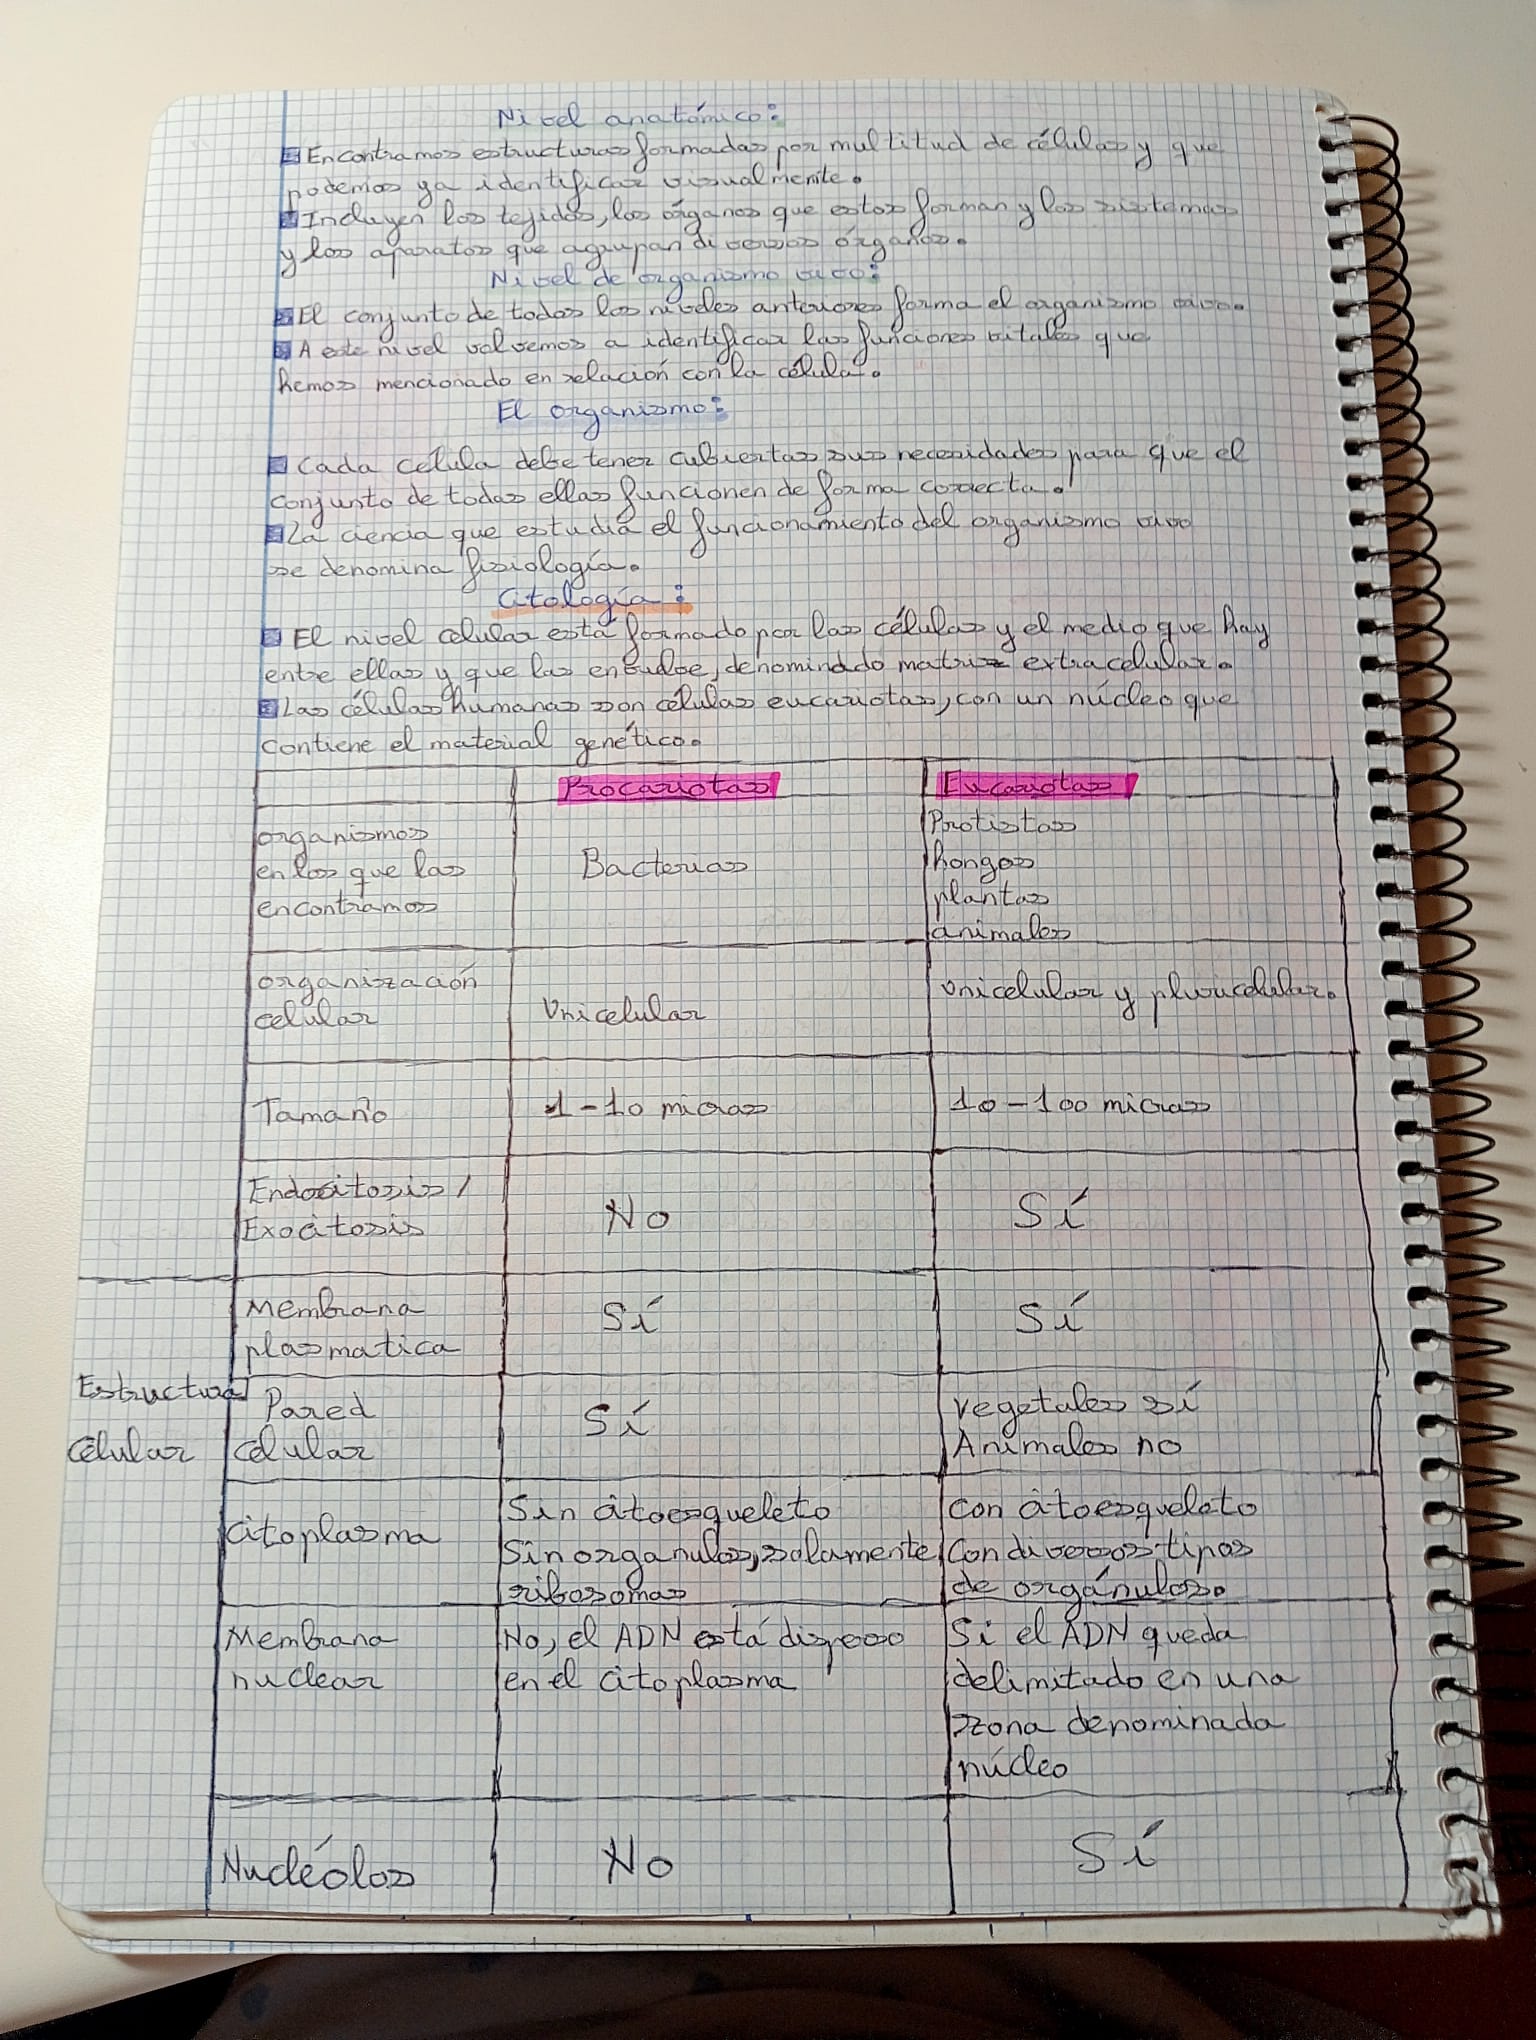 Nivel anatómico:
Encontramos estructuras formadas por multitud de células y que
podemos ya identificar visualmente.
Incluyen los tejidos, los órganos que estos forman y los sistemas
y los aparatos que agrupan diversos órganos.
Nivel de organismo vivo:
El conjunto de todos los niveles anteriores forma el organismo vivo.
A este nivel volvemos a identificar las funciones vitales que
hemos mencionado en relación con la célula.
El organismo:
Cada célula debe tener cubiertas sus necesidades para que el
conjunto de todas ellas funcionen de forma correcta.
La ciencia que estudia el funcionamiento del organismo vivo
se denomina fisiología.
Citología:
El nivel celular está formado por las células y el medio que hay
entre ellas y que las envuelve, denominado matriz extracelular.
Las células humanas son células eucariotas, con un núcleo que
contiene el material genético.
Procariotas Eucariotas
organismos
en los que las
encontramos
Bacterias
Protistas
hongos
plantas
animales
organización
celular
Unicelular
Unicelular y pluricelular.
Tamaño 1-10 micras 10-100 micras
Endocitosis/
Exocitosis
No Sí
Membrana
plasmatica
Sí Sí
Estructura
célular
Pared
célular
Sí
vegetales sí
Animales no
citoplasma
Sin citoesqueleto
Sin organulos, solamente
ribosomas
con citoesqueleto
Con diversos tipos
de orgánulos.
Membrana
nuclear
No, el ADN está disperso
en el citoplasma
Si el ADN queda
delimitado en una
zona denominada
núcleo
Nucléolos No Sí